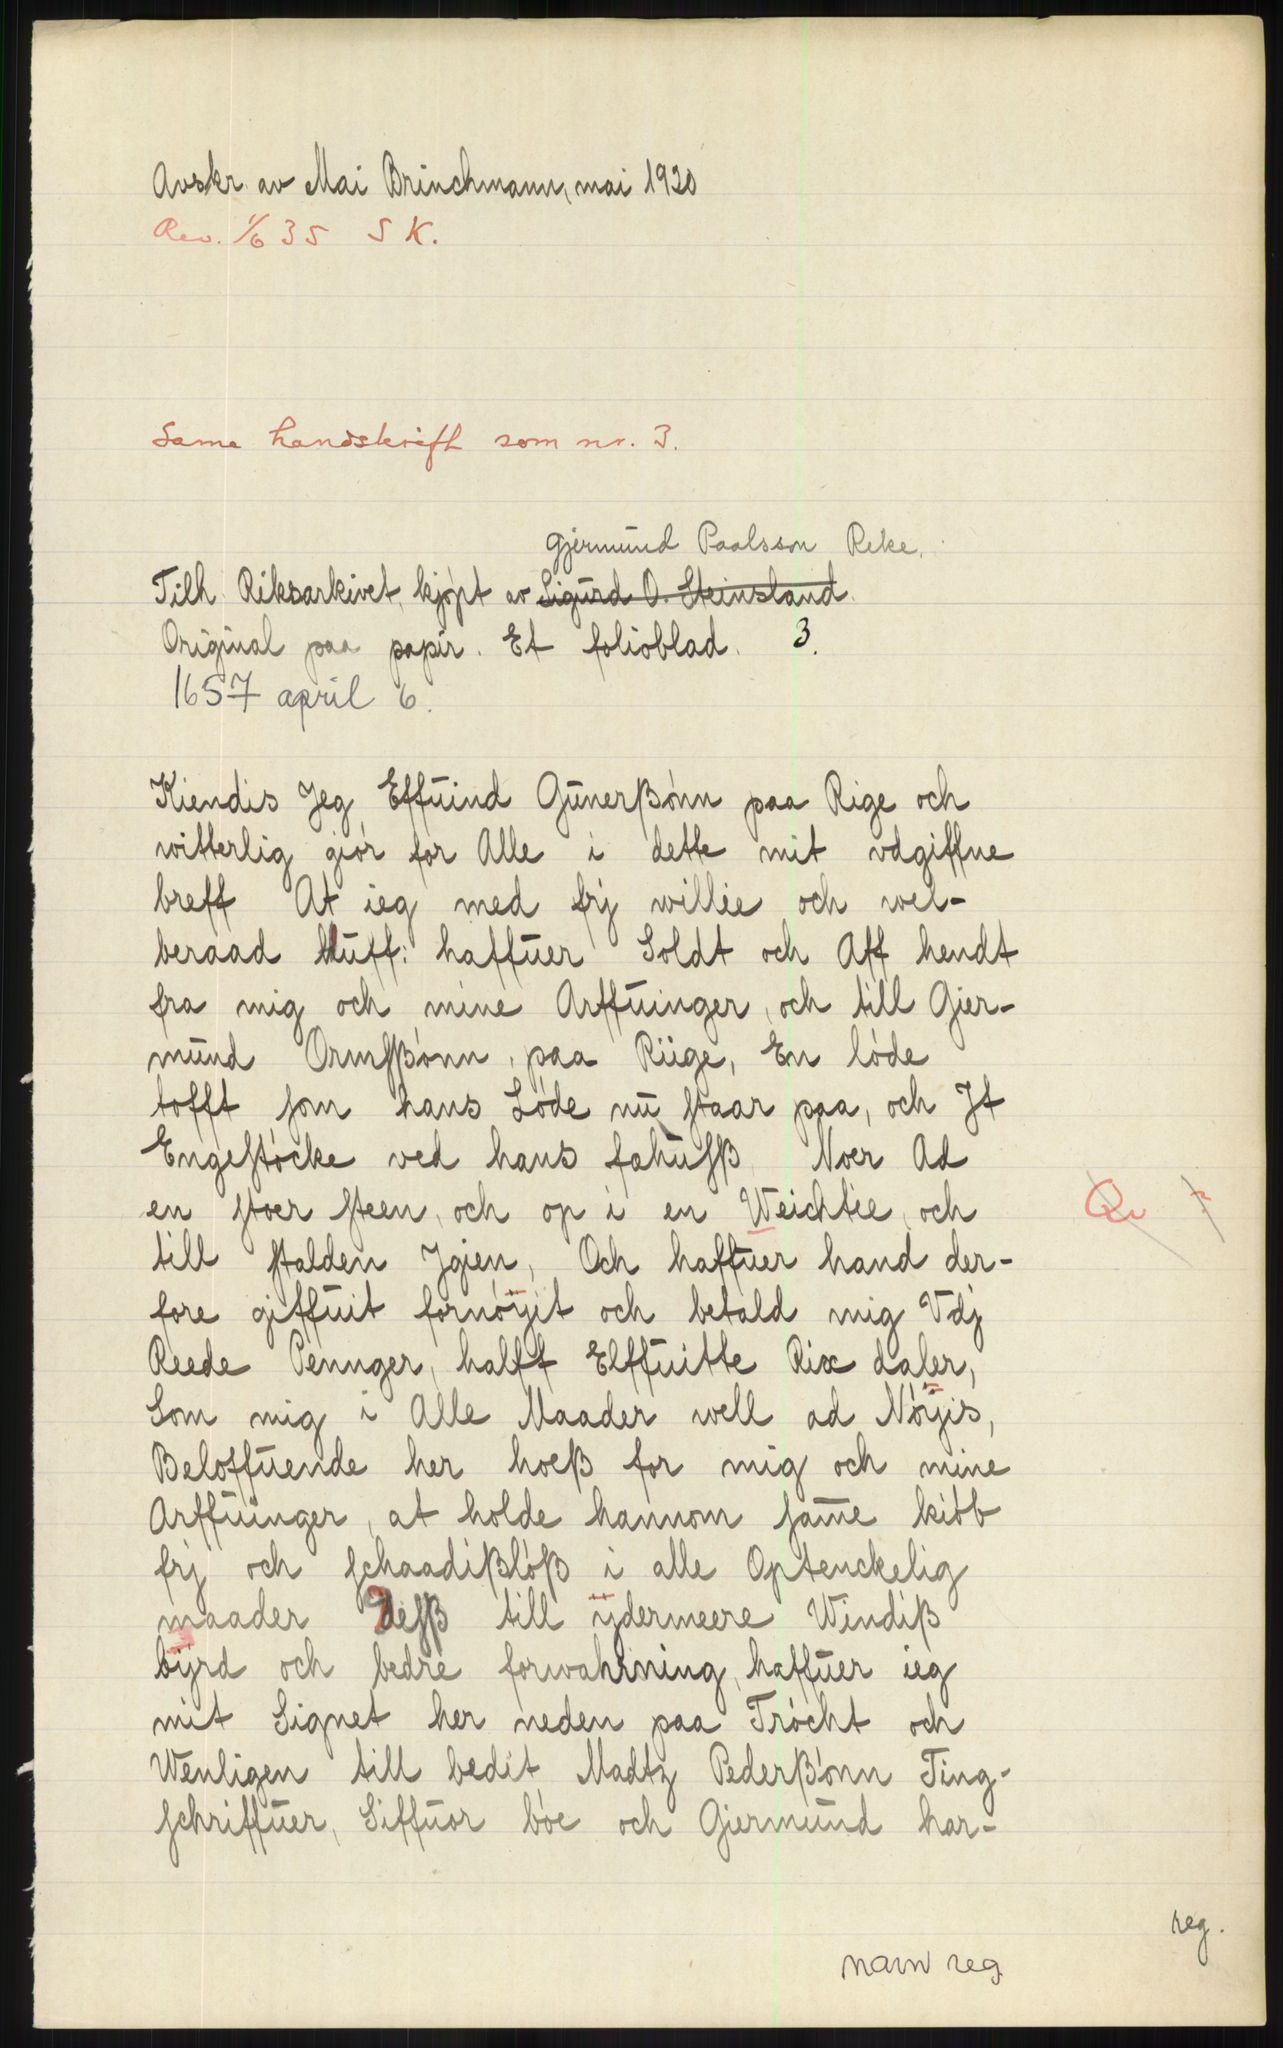 Avskr. av Mai Brinchmann, mai 1920
Rev. 1/6 35 S K.
Same handskrift som nr. 3.
Gjermund Paalsson Reke.
Tilh. Riksarkivet, kjøpt av Sigurd O. Steinsland.
Original paa papir. Et folioblad. 3.
1657 april 6.
Kiendis Jeg Effuind Gunerßønn paa Rige och
witterlig giør for Alle i dette mit vdgiffne
breff At ieg med frj willie och wel-
beraad Huff: haffuer Soldt och Aff hendt
fra mig och mine Arffuinger, och till Gier-
mund Ormsßønn, paa Riige, En løde
tofft som hans Løde nu staar paa, och Jt
Engestøcke ved hans fæhusß Noer Ad
en stoer steen, och op i en Weichtie, och
till stalden Jgien, Och haffuer hand der-
fore giffuit fornøÿit och betald mig Vdj
Reede Pennger, halff Elffuitte Rix daler,
Som mig i Alle Maader well ad Nøÿis,
Beloffuende her hoeß for mig och mine
Arffuinger, at holde hannom same kiøb
frj och schaadißløß i alle Optenckelig
maader Desß till ÿdermeere Windiß
bÿrd och bedre forwahrning, haffuer ieg
mit Signet her neden paa Trøcht och
Wenligen till bedit Madtz Pederßønn Ting-
schriffuer, Siffuor bøe och Giermund har-
reg.
navn reg